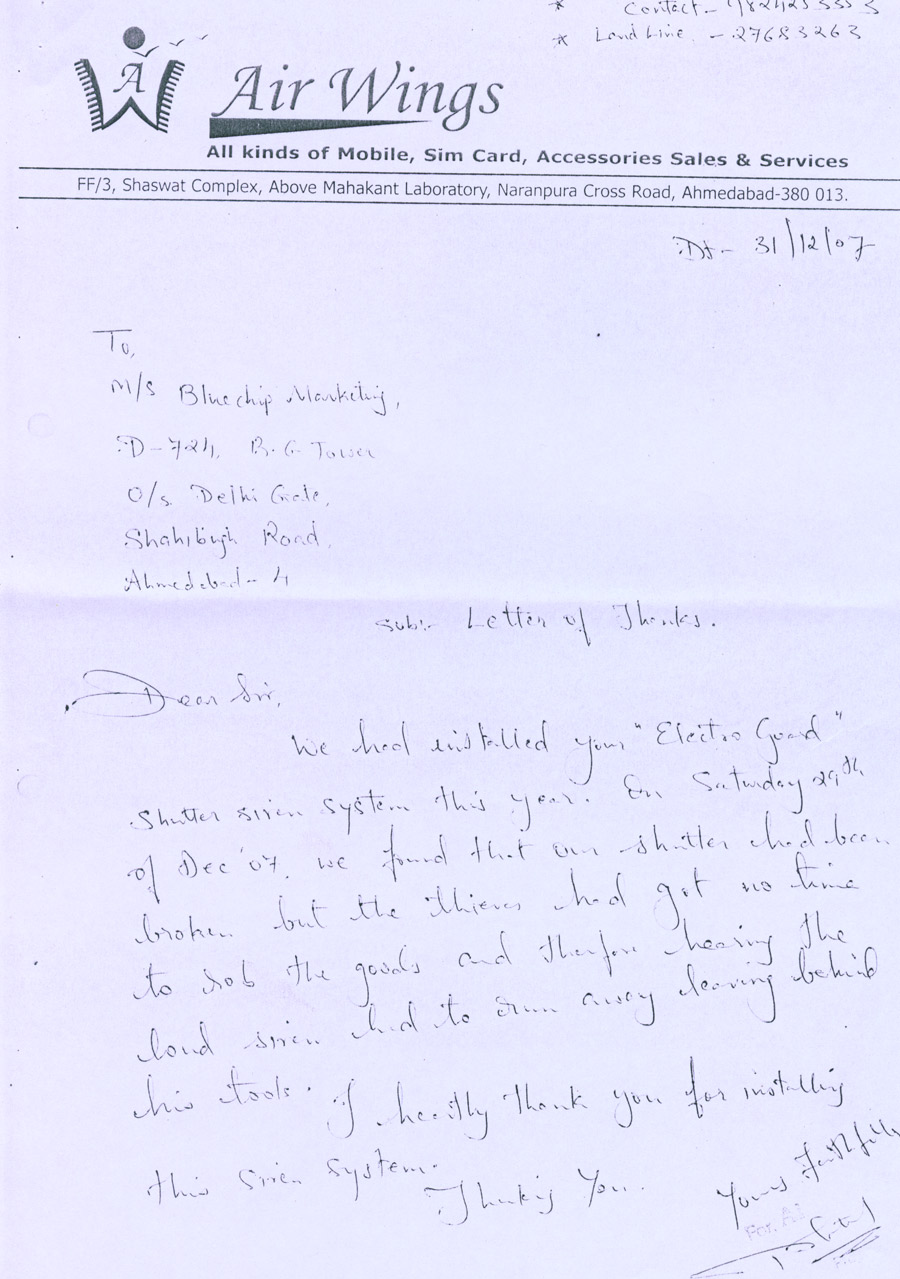 * Contact -
* Land Line - 27683263
A
Air Wings
All kinds of Mobile, Sim Card, Accessories Sales & Services
FF/3, Shaswat Complex, Above Mahakant Laboratory, Naranpura Cross Road, Ahmedabad-380 013.
Dt - 31/12/07
To,
M/s Bluechip Marketing,
D-724, B.G Tower
O/s. Delhi Gate,
Shahibugh Road,
Ahmedabad - 4
Sub:- Letter of Thanks.
Dear Sir,
We had installed your "Electro Guard"
Shutter siren system this year. On Saturday 29th
of Dec'07, we found that our shutter had been
broken but the thieves had got no time
to rob the goods and therfore hearing the
loud siren had to run away leaving behind
his tools. I heartly thank you for installing
this siren system.
Thanking You.
Yours faithfully
For, Ai